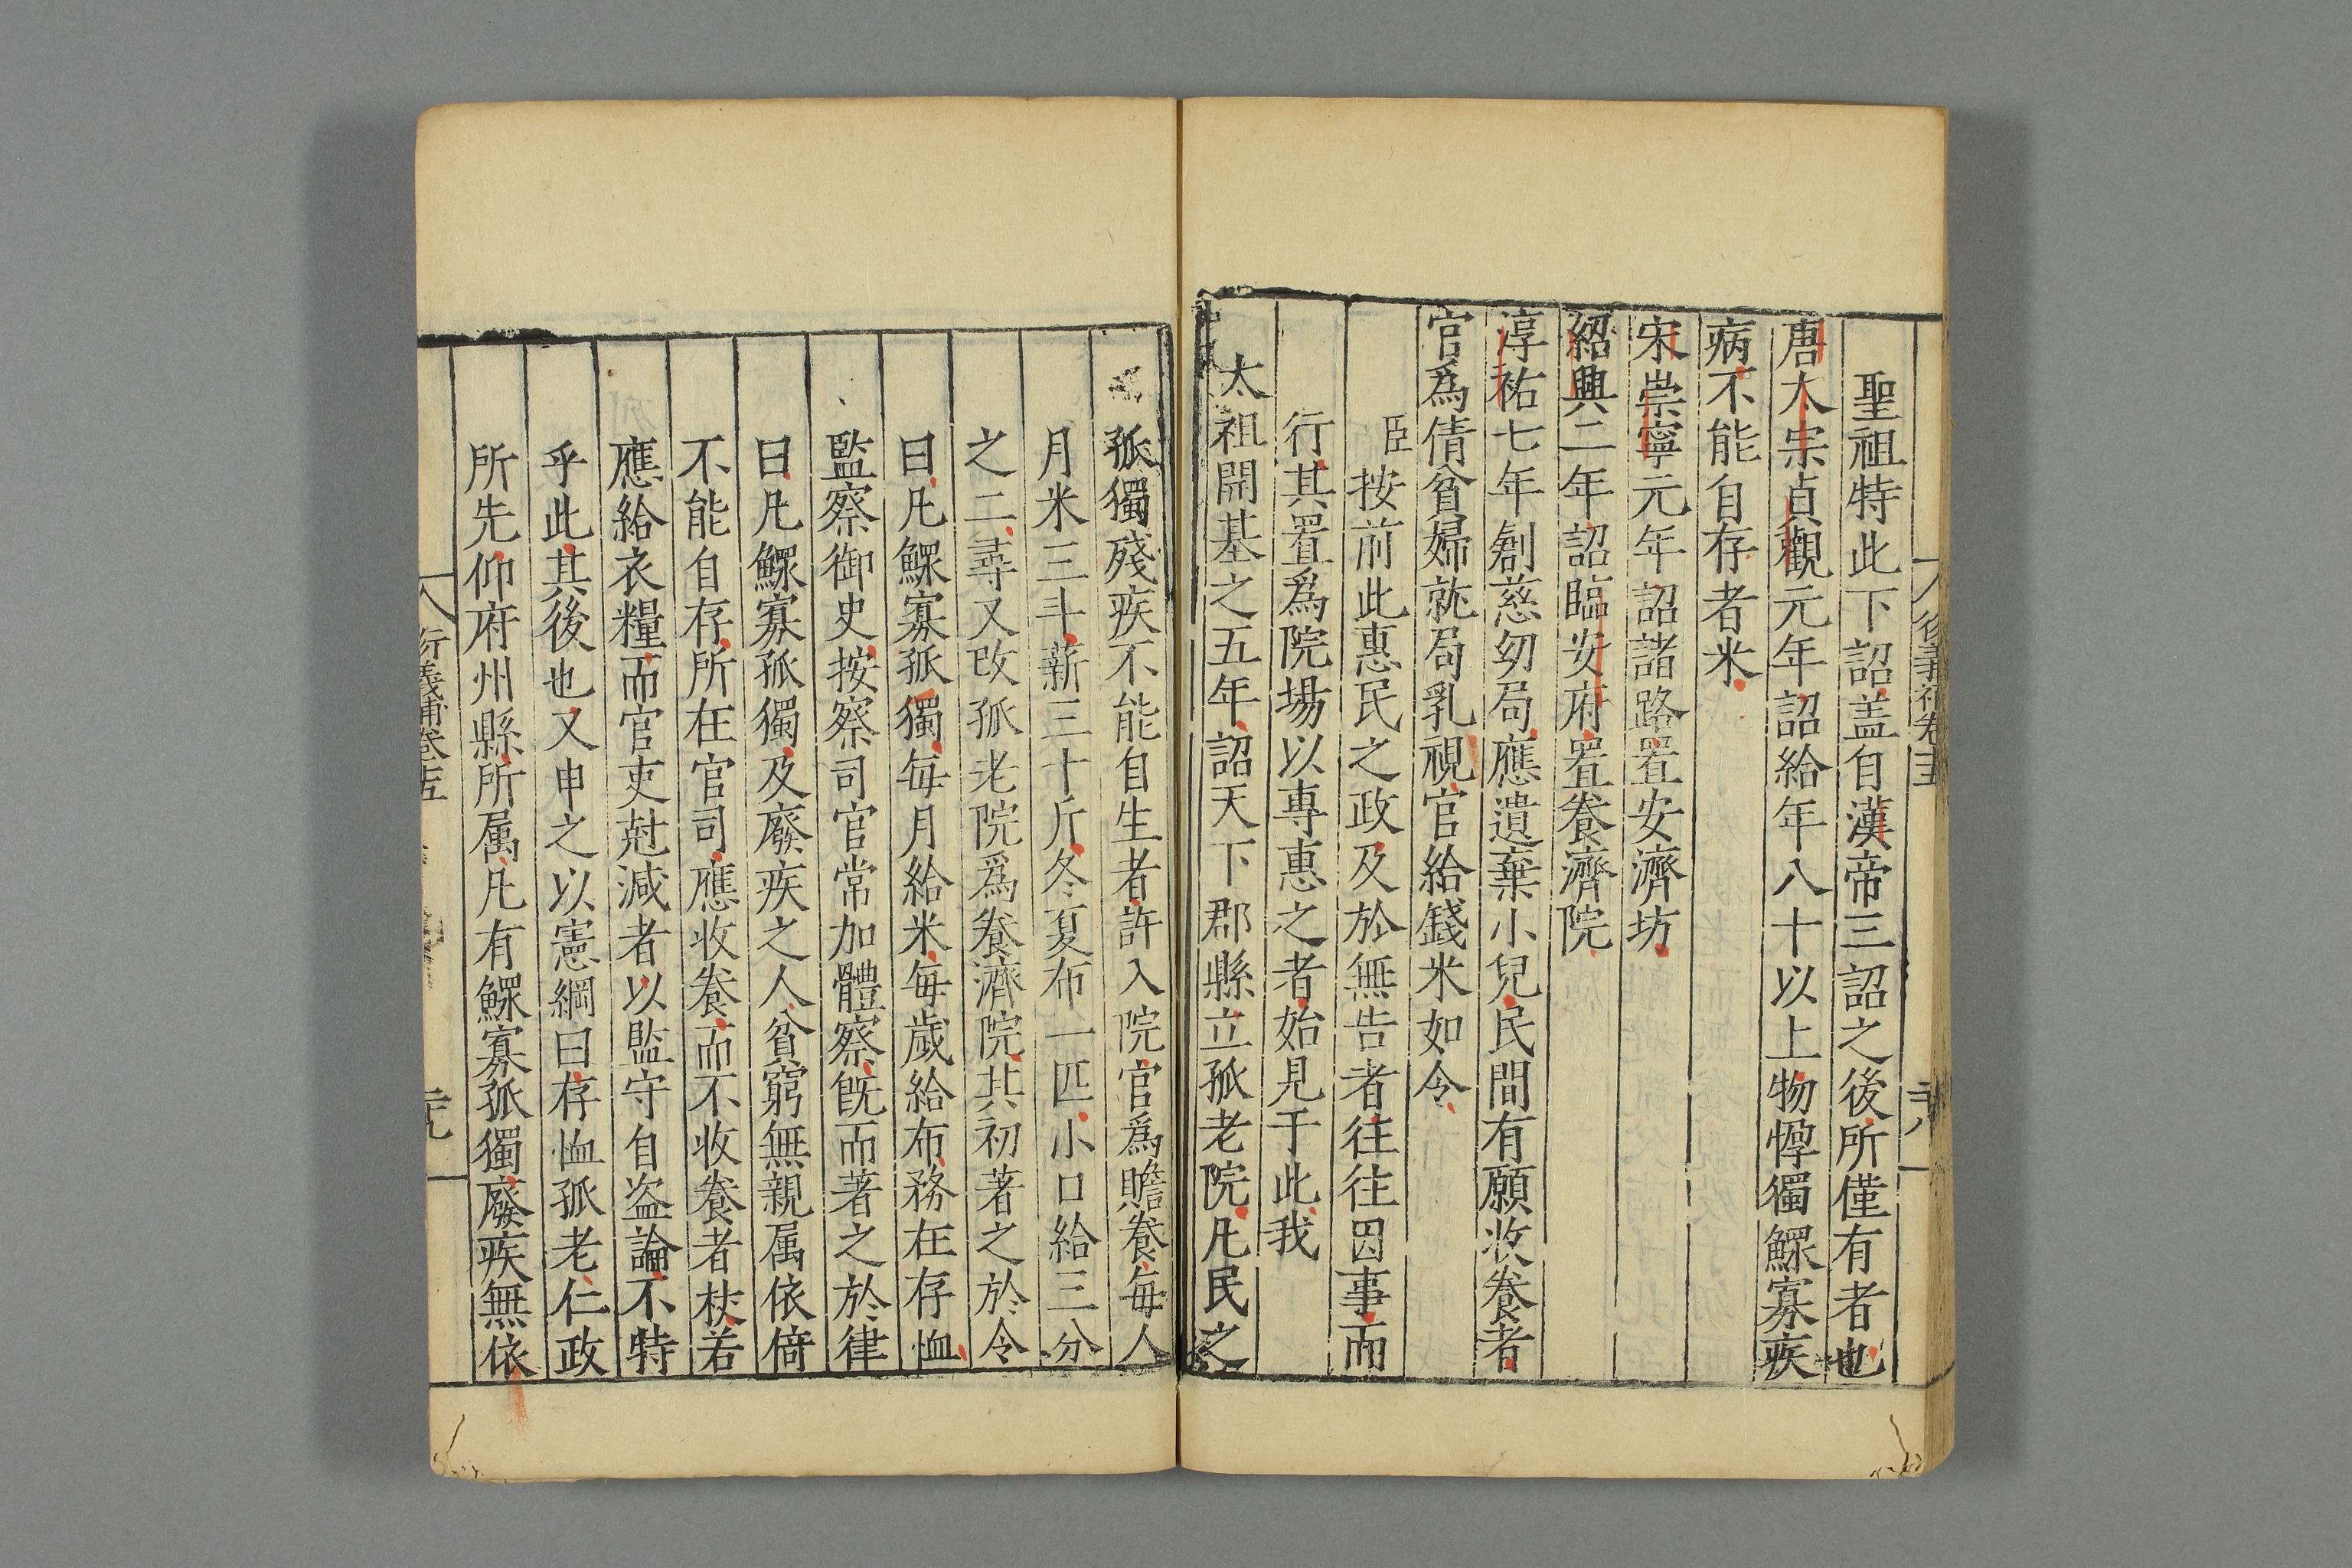 聖祖特此下詔盖自漢帝三詔之後所僅有者也
唐太宗貞觀元年詔給年八十以上物惸獨鰥寡疾
病不能自存者米
宋崇寧元年詔諸路置安濟坊
紹興二年詔臨安府置養濟院
淳祐七年創慈幼局應遺棄小兒民間有願收養者
官爲倩貧婦就局乳視官給錢米如令
臣按前此惠民之政及於無告者往往因事而
行其置爲院場以專惠之者始見于此我
太祖開基之五年詔天下郡縣立孤老院凡民之
孤獨殘疾不能自生者許入院官爲贍養每人
月米三斗薪三十斤冬夏布一匹小口給三分
之二尋又改孤老院爲養濟院其初著之於令
曰凡鰥寡孤獨每月給米每歲給布務在存恤
監察御史按察司官常加體察旣而著之於律
曰凡鰥寡孤獨及廢疾之人貧窮無親属依倚
不能自存所在官司應收養而不收養者杖若
應給衣糧而官吏尅減者以監守自盗論不特
乎此其後也又申之以憲綱曰存恤孤老仁政
所先仰府州縣所属凡有鰥寡孤獨廢疾無依
衍義補卷十五